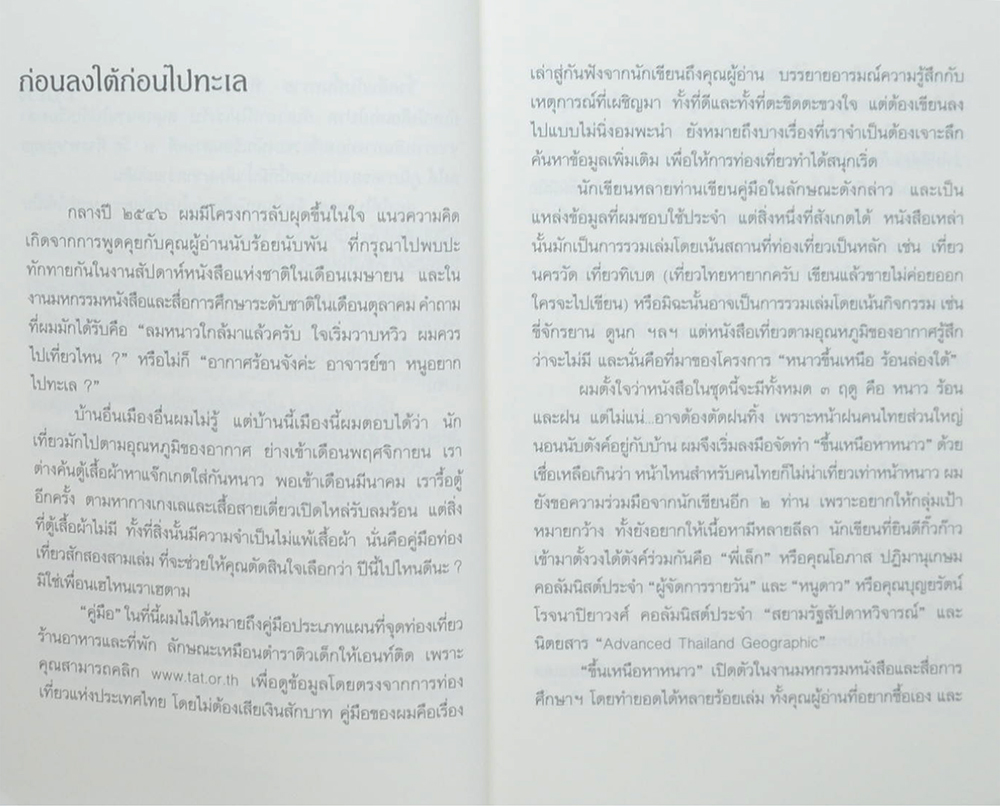 ก่อนลงใต้ก่อนไปทะเล
กลางปี ๒๕๔๖ ผมมีโครงการลับผุดขึ้นในใจ แนวความคิด
เกิดจากการพูดคุยกับคุณผู้อ่านนับร้อยนับพัน ที่กรุณาไปพบปะ
ทักทายกันในงานสัปดาห์หนังสือแห่งชาติในเดือนเมษายน และใน
งานมหกรรมหนังสือและสื่อการศึกษาระดับชาติในเดือนตุลาคม คำถาม
ที่ผมมักได้รับคือ "ลมหนาวใกล้มาแล้วครับ ใจเริ่มวาบหวิว ผมควร
ไปเที่ยวไหน ?" หรือไม่ก็ "อากาศร้อนจังค่ะ อาจารย์ขา หนูอยาก
ไปทะเล ?"
บ้านอื่นเมืองอื่นผมไม่รู้ แต่บ้านนี้เมืองนี้ผมตอบได้ว่า นัก
เที่ยวมักไปตามอุณหภูมิของอากาศ ย่างเข้าเดือนพฤศจิกายน เรา
ต่างค้นตู้เสื้อผ้าหาแจ็กเกตใส่กันหนาว พอเข้าเดือนมีนาคม เรารื้อตู้
อีกครั้ง ตามหากางเกงเลและเสื้อสายเดี่ยวเปิดไหล่รับลมร้อน แต่สิ่ง
ที่ตู้เสื้อผ้าไม่มี ทั้งที่สิ่งนั้นมีความจำเป็นไม่แพ้เสื้อผ้า นั่นคือคู่มือท่อง
เที่ยวสักสองสามเล่ม ที่จะช่วยให้คุณตัดสินใจเลือกว่า ปีนี้ไปไหนดีนะ ?
มิใช่เพื่อนเฮไหนเราเฮตาม
"คู่มือ" ในที่นี้ผมไม่ได้หมายถึงคู่มือประเภทแผนที่จุดท่องเที่ยว
ร้านอาหารและที่พัก ลักษณะเหมือนตำราติวเด็กให้เอนท์ติด เพราะ
คุณสามารถคลิก www.tat.or.th เพื่อดูข้อมูลโดยตรงจากการท่อง
เที่ยวแห่งประเทศไทย โดยไม่ต้องเสียเงินสักบาท คู่มือของผมคือเรื่อง
เล่าสู่กันฟังจากนักเขียนถึงคุณผู้อ่าน บรรยายอารมณ์ความรู้สึกกับ
เหตุการณ์ที่เผชิญมา ทั้งที่ดีและทั้งที่ตะขิดตะขวงใจ แต่ต้องเขียนลง
ไปแบบไม่นิ่งอมพะนำ ยังหมายถึงบางเรื่องที่เราจำเป็นต้องเจาะลึก
ค้นหาข้อมูลเพิ่มเติม เพื่อให้การท่องเที่ยวทำได้สนุกเริ่ด
นักเขียนหลายท่านเขียนคู่มือในลักษณะดังกล่าว และเป็น
แหล่งข้อมูลที่ผมชอบใช้ประจำ แต่สิ่งหนึ่งที่สังเกตได้ หนังสือเหล่า
นั้นมักเป็นการรวมเล่มโดยเน้นสถานที่ท่องเที่ยวเป็นหลัก เช่น เที่ยว
นครวัด เที่ยวทิเบต (เที่ยวไทยหายากครับ เขียนแล้วขายไม่ค่อยออก
ใครจะไปเขียน) หรือมิฉะนั้นอาจเป็นการรวมเล่มโดยเน้นกิจกรรม เช่น
ขี่จักรยาน ดูนก ฯลฯ แต่หนังสือเที่ยวตามอุณหภูมิของอากาศรู้สึก
ว่าจะไม่มี และนั่นคือที่มาของโครงการ "หนาวขึ้นเหนือ ร้อนล่องใต้"
ผมตั้งใจว่าหนังสือในชุดนี้จะมีทั้งหมด ๓ ฤดู คือ หนาว ร้อน
และฝน แต่ไม่แน่...อาจต้องตัดฝนทิ้ง เพราะหน้าฝนคนไทยส่วนใหญ่
นอนนับตังค์อยู่กับบ้าน ผมจึงเริ่มลงมือจัดทำ "ขึ้นเหนือหาหนาว" ด้วย
เชื่อเหลือเกินว่า หน้าไหนสำหรับคนไทยก็ไม่น่าเที่ยวเท่าหน้าหนาว ผม
ยังขอความร่วมมือจากนักเขียนอีก ๒ ท่าน เพราะอยากให้กลุ่มเป้า
หมายกว้าง ทั้งยังอยากให้เนื้อหามีหลายลีลา นักเขียนที่ยินดีกิ๊วก๊าว
เข้ามาตั้งวงได้ตังค์ร่วมกันคือ "พี่เล็ก" หรือคุณโอภาส ปฏิมานุเกษม
คอลัมนิสต์ประจำ "ผู้จัดการรายวัน" และ "หนูดาว" หรือคุณบุญยรัตน์
โรจนาปิยาวงศ์ คอลัมนิสต์ประจำ "สยามรัฐสัปดาหวิจารณ์" และ
นิตยสาร "Advanced Thailand Geographic"
"ขึ้นเหนือหาหนาว" เปิดตัวในงานมหกรรมหนังสือและสื่อการ
ศึกษาฯ โดยทำยอดได้หลายร้อยเล่ม ทั้งคุณผู้อ่านที่อยากซื้อเอง และ